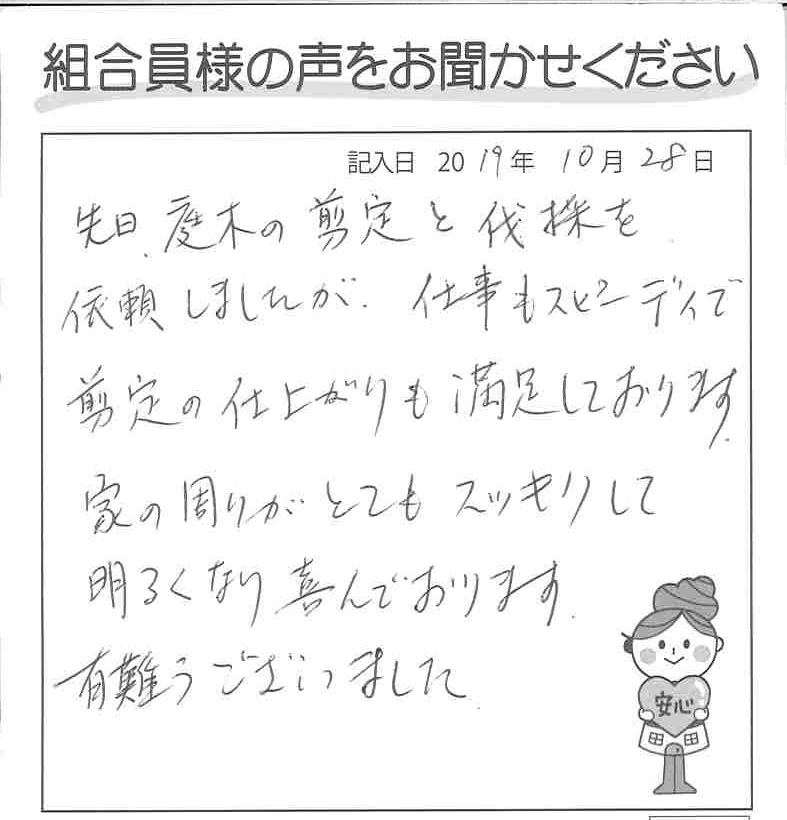 組合員様の声をお聞かせください
記入日 2019年 10月 28日
先日、庭木の剪定と伐採を
依頼しましたが、仕事もスピーディで
剪定の仕上がりも満足しております。
家の周りがとてもスッキリして
明るくなり喜んでおります。
有難うございました
安心